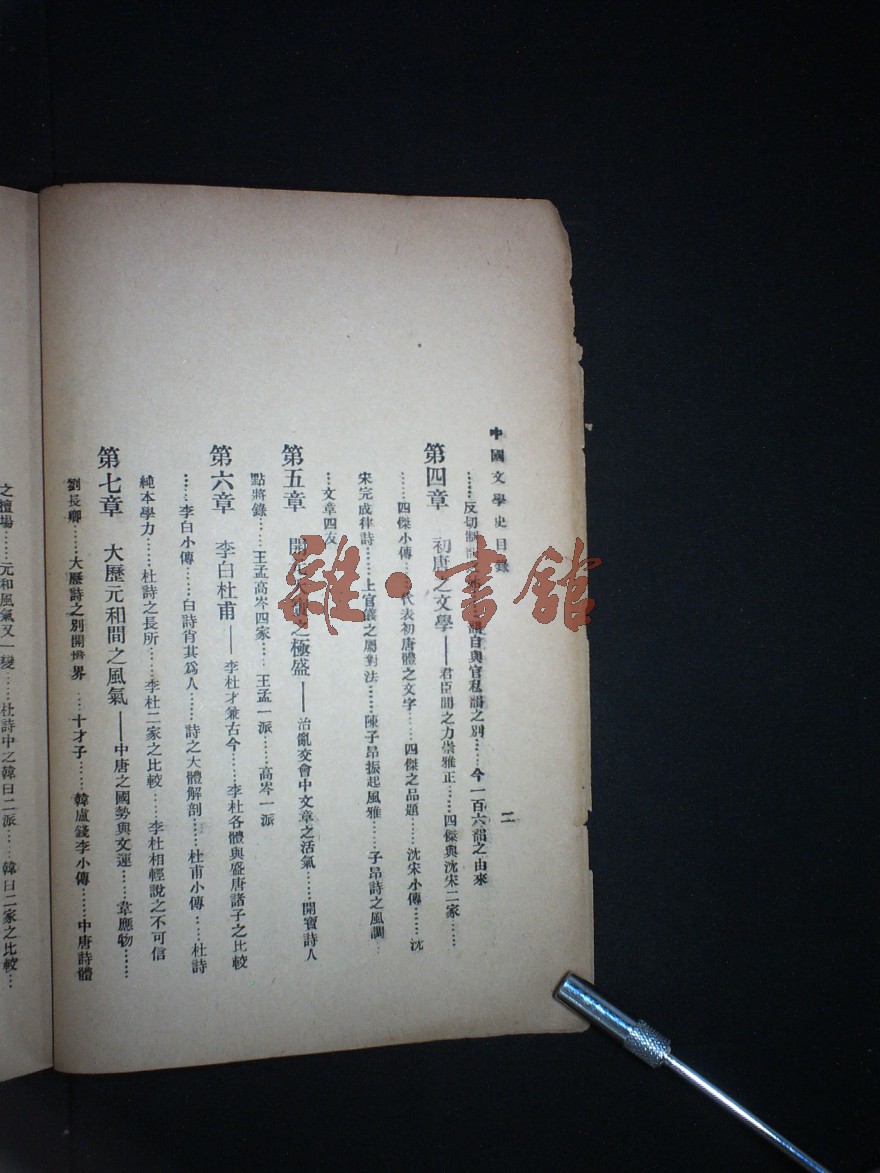 中國文學史目錄
二
……反切
自與官私韻之別……今一百六韻之由來
第四章 初唐之文學——君臣間之力崇雅正……四傑與沈宋二家……
……四傑小傳
代表初唐體之文字……四傑之品題……沈宋小傳……沈
宋完成律詩……上官儀之屬對法……陳子昂振起風雅……子昂詩之風調…
…文章四友
第五章 開
之極盛——治亂交會中文章之活氣……開寶詩人
點將錄……王孟高岑四家……王孟一派……高岑一派
第六章 李白杜甫——李杜才兼古今……李杜各體與盛唐諸子之比較
……李白小傳……白詩肖其爲人……詩之大體解剖……杜甫小傳……杜詩
純本學力……杜詩之長所……李杜二家之比較……李杜相輕說之不可信
第七章 大歷元和間之風氣——中唐之國勢與文運……韋應物……
劉長卿……大歷詩之別開世界……十才子……韓盧錢李小傳……中唐詩體
之壇場……元和風氣又一變……杜詩中之韓白二派……韓白二家之比較…
雜·書館